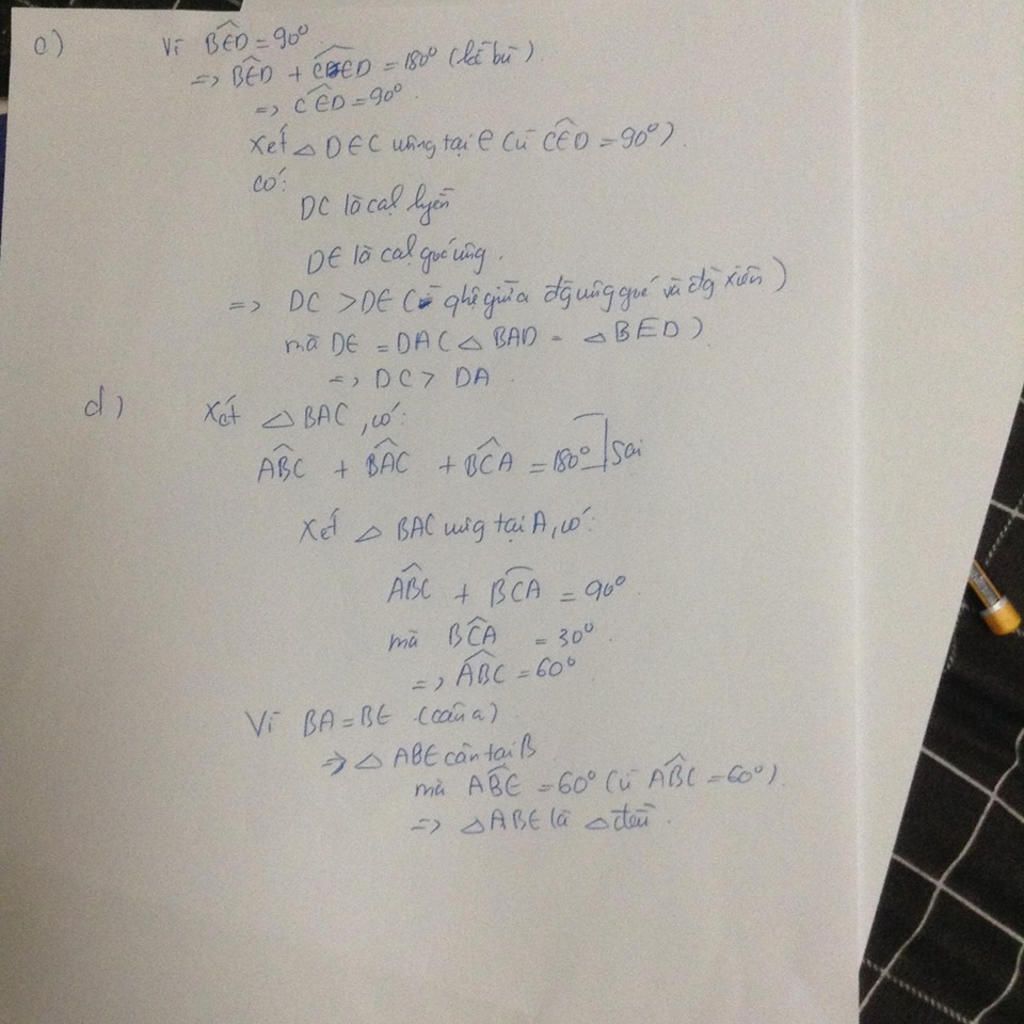 c) Vì BÊD = 90°
=> BÊD + CÊD = 180° (kề bù)
=> CÊD = 90°.
Xét △ DEC vuông tại E (vì CÊD = 90°)
có:
DC là cạnh huyền
DE là cạnh góc vuông.
=> DC > DE (qhệ giữa đg vuông góc và đg xiên)
mà DE = DA (△ BAD = △ BED)
=> DC > DA
d) Xét △ BAC, có:
ABC + BAC + BCA = 180° Sai
Xét △ BAC vuông tại A, có:
ABC + BCA = 90°
mà BCA = 30°.
=> ABC = 60°
Vì BA = BE (câu a)
=> △ ABE cân tại B
mà ABE = 60° (vì ABC = 60°)
=> △ ABE là △ đều.